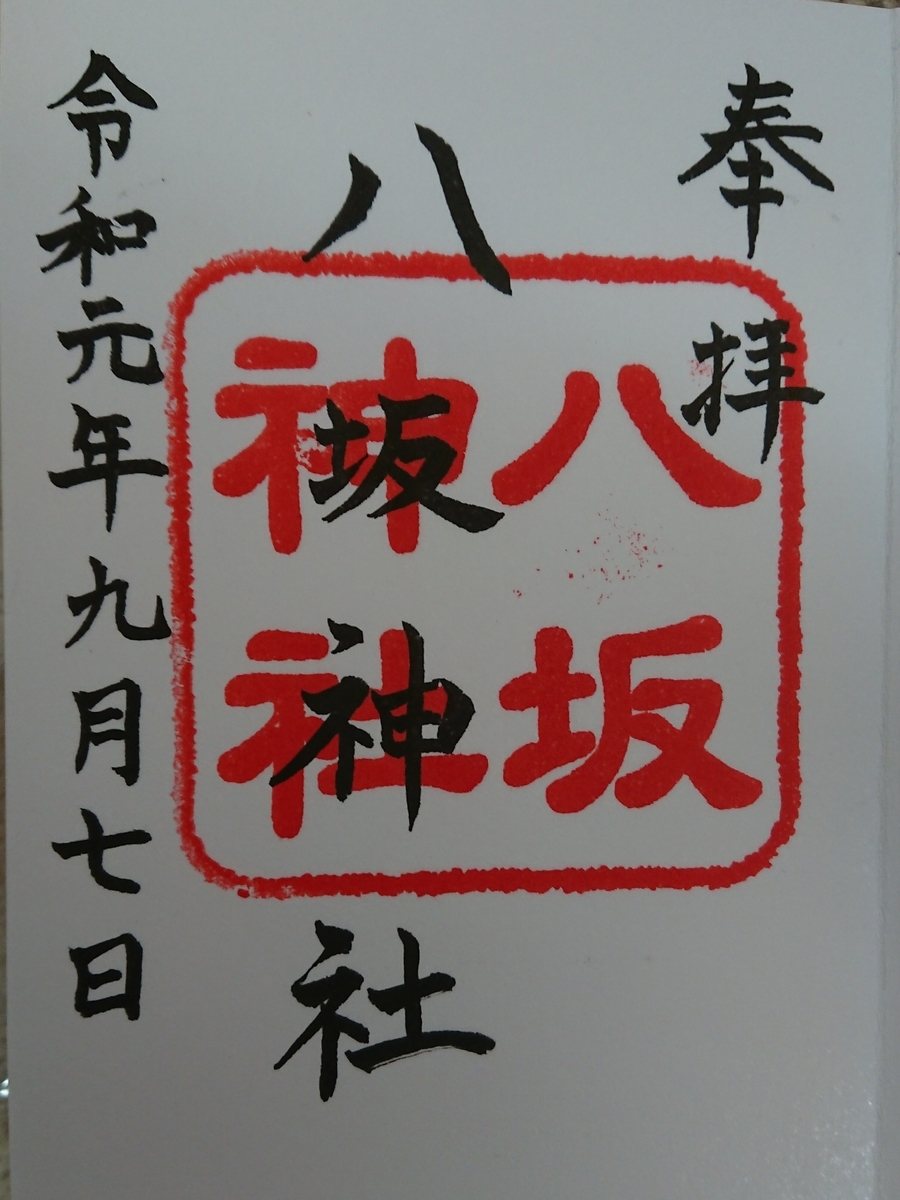 奉拝
八坂神社
八坂
神社
令和元年九月七日